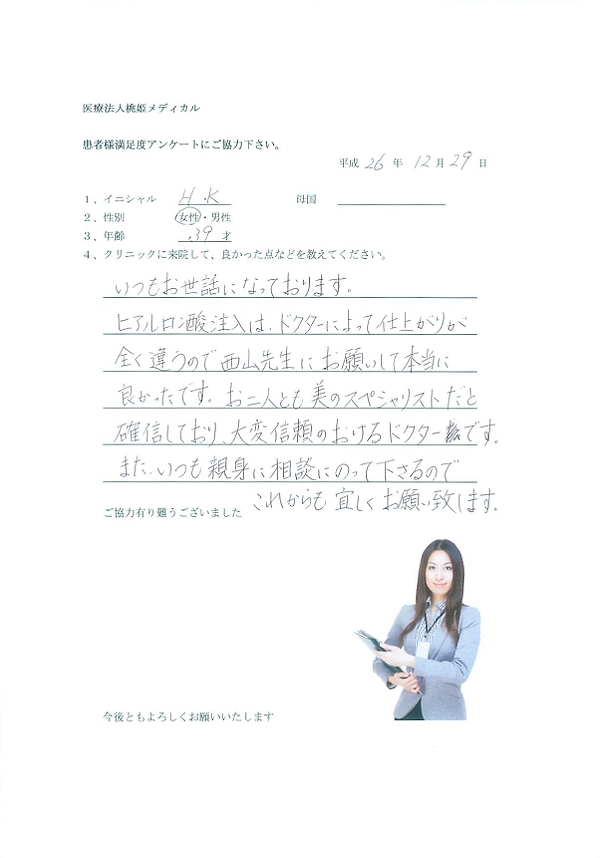 医療法人桃姫メディカル
患者様満足度アンケートにご協力下さい。
平成 26 年 12 月 29 日
1、イニシャル H.K 母国
2、性別 女性・男性
3、年齢 39 才
4、クリニックに来院して、良かった点などを教えてください。
いつもお世話になっております。
ヒアルロン酸注入は、ドクターによって仕上がりが
全く違うので西山先生にお願いして本当に
良かったです。お二人とも美のスペシャリストだと
確信しており、大変信頼のおけるドクターです。
また、いつも親身に相談にのって下さるので
これからも宜しくお願い致します。
ご協力有り難うございました
今後ともよろしくお願いいたします